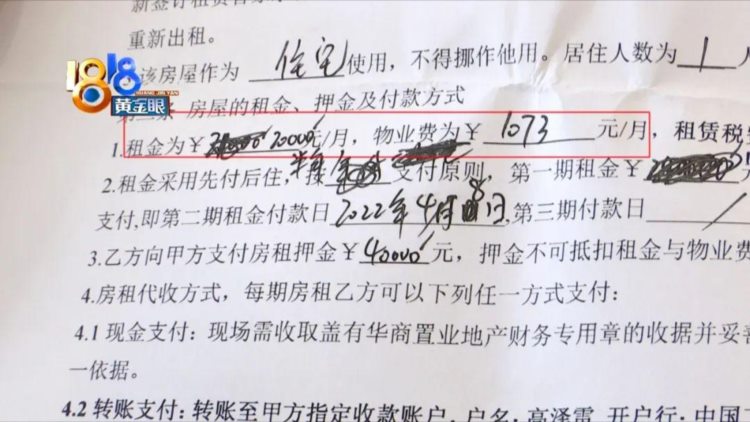 重新出租。
该房屋作为 住宅 使用，不得挪作他用。居住人数为 1
1818
黄金眼
HUANG JIN YAN
房屋的租金、押金及付款方式
1.租金为￥ 20000元/月，物业费为￥ 1073 元/月，租赁税
2.租金采用先付后住，按 半年 支付原则，第一期租金￥
支付,即第二期租金付款日 2022年4月8日,第三期付款日
3.乙方向甲方支付房租押金￥ 40000 元，押金不可抵扣租金与物业费
4.房租代收方式，每期房租乙方可以下列任一方式支付：
4.1 现金支付：现场需收取盖有华商置业地产财务专用章的收据并妥善
一依据。
4.2 转账支付：转账至甲方指定收款账户，户名：高泽雷，开户行：中国